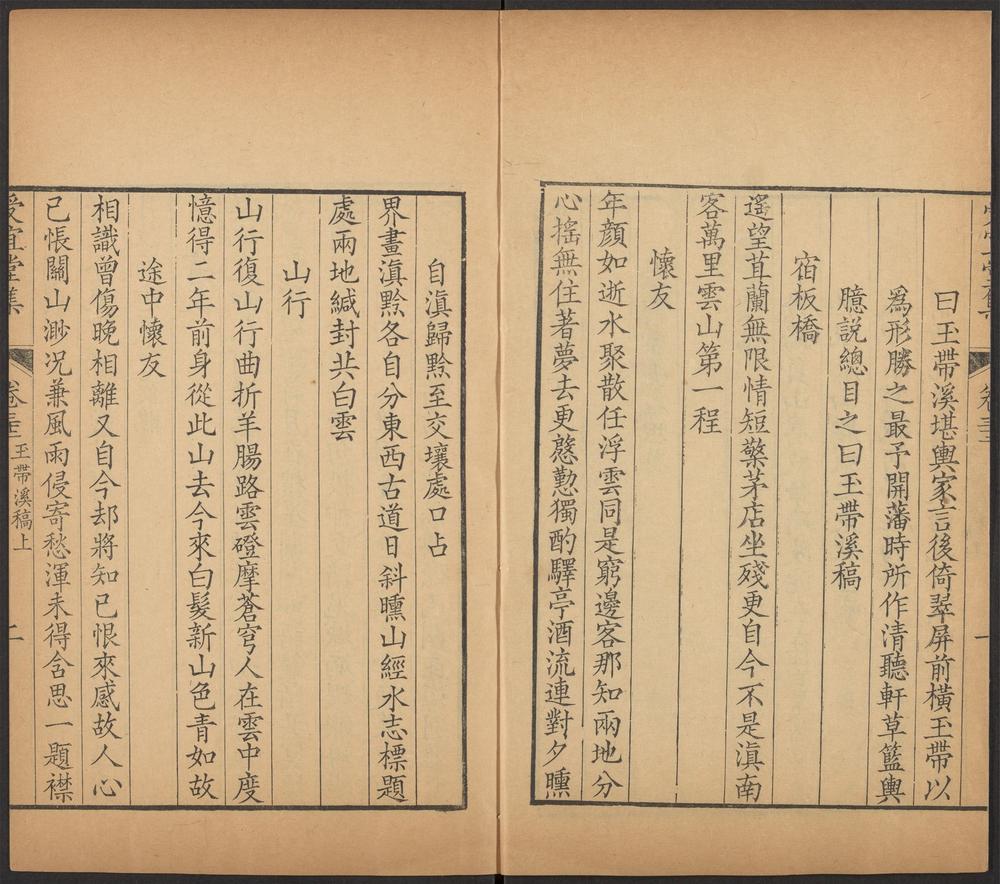 曰玉帶溪堪輿家言後倚翠屏前橫玉帶以
爲形勝之最予開藩時所作清聽軒草籃輿
臆説總目之曰玉帶溪稿
宿板橋
遙望苴蘭無限情短檠茅店坐殘更自今不是滇南
客萬里雲山第一程
懷友
年顔如逝水聚散任浮雲同是窮邊客那知兩地分
心搖無住著夢去更慇懃獨酌驛亭酒流連對夕曛
一
自滇歸黔至交壤處口占
界畫滇黔各自分東西古道日斜曛山經水志標題
處兩地緘封共白雲
山行
山行復山行曲折羊腸路雲磴摩蒼穹人在雲中度
憶得二年前身從此山去今來白髮新山色青如故
途中懷友
相識曾傷晚相離又自今却將知己恨來感故人心
已悵關山渺況兼風雨侵寄愁渾未得含思一題襟
受宜堂集 玉帶溪稿上 二